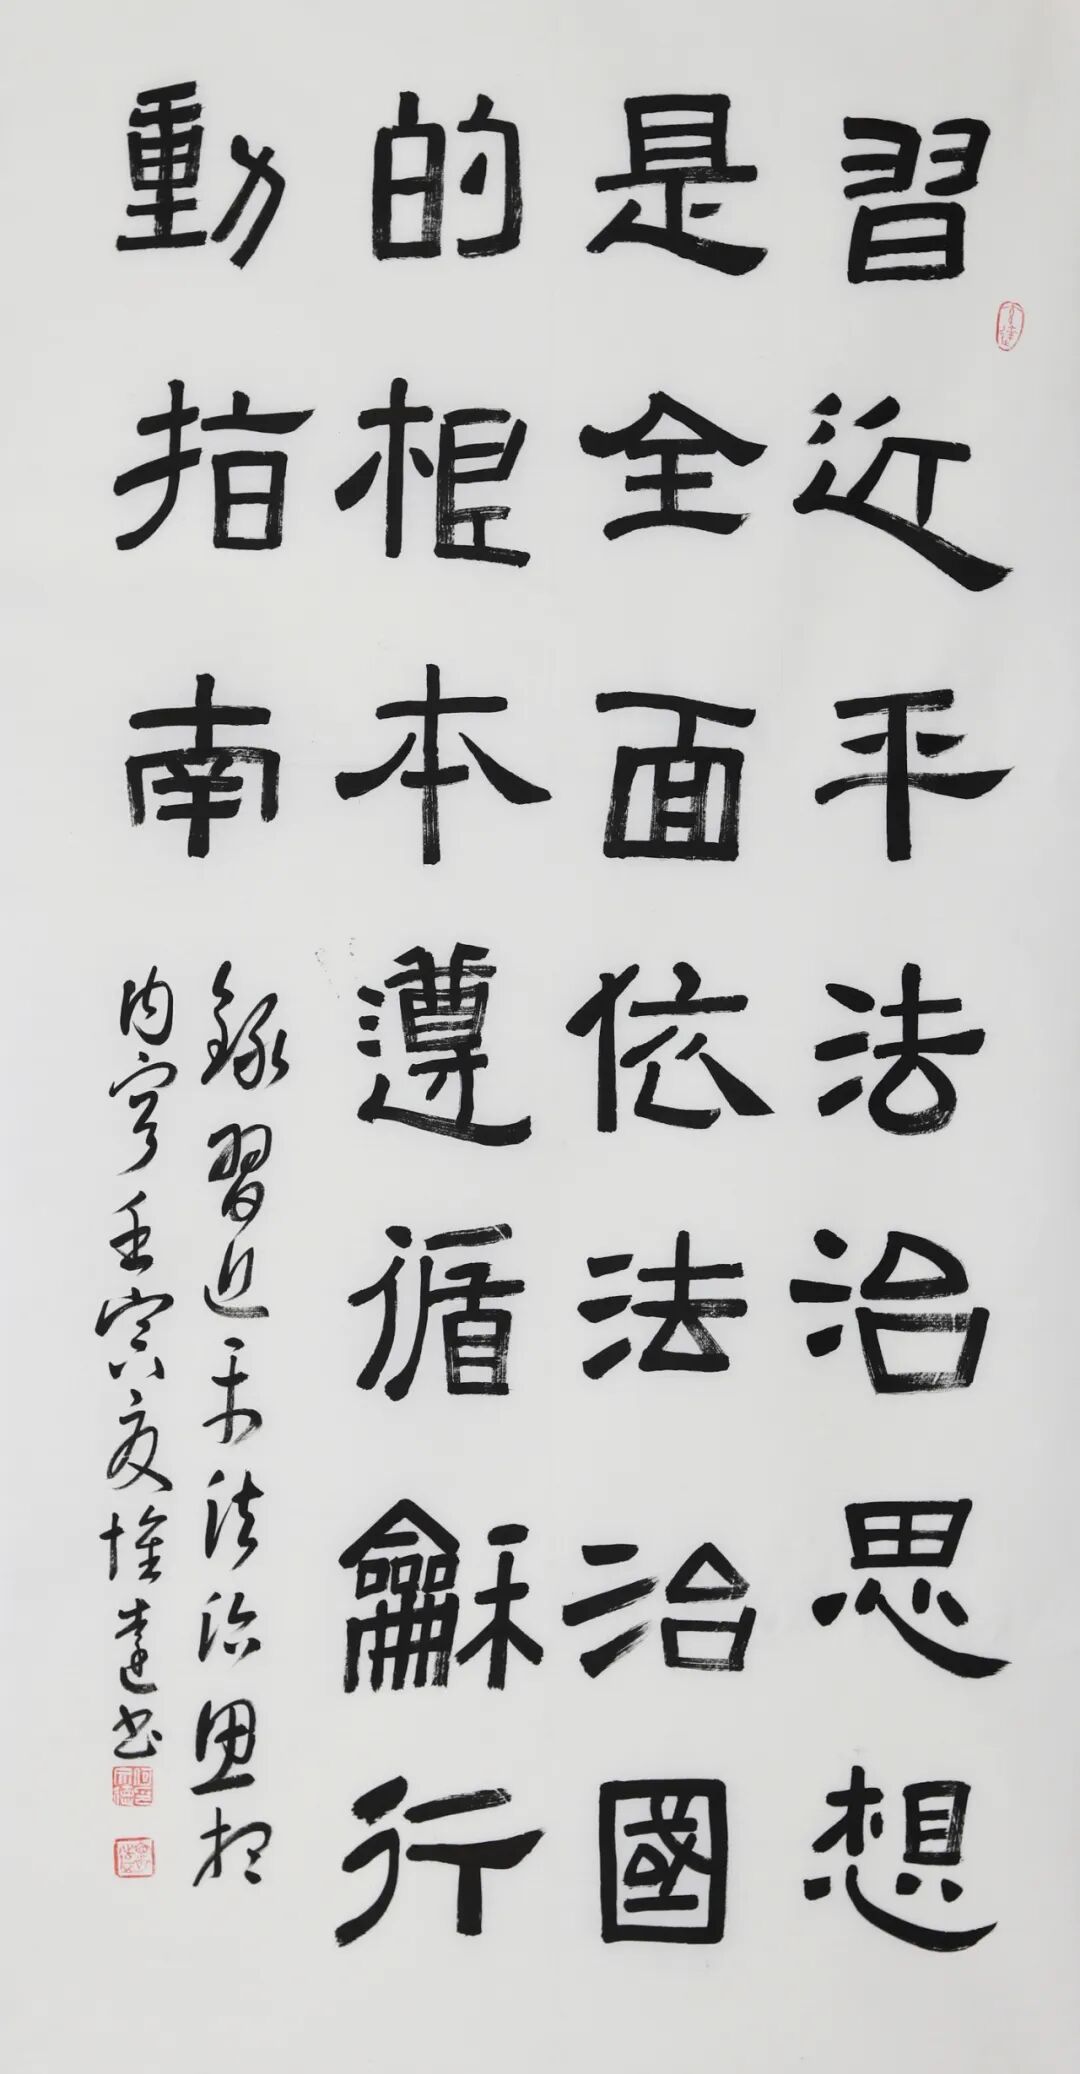 習近平法治思想
是全面依法治國
的根本遵循龢行
動指南
錄習近平法治思想
内容壬寅夏惟達书